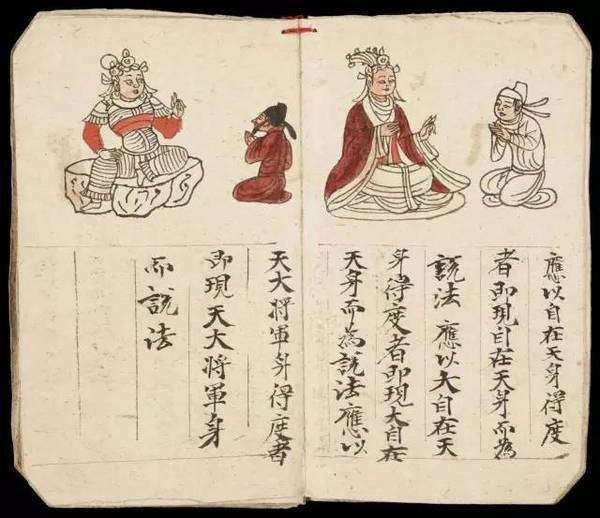 應以自在天身得度
者即現自在天身而為
說法 應以大自在天
身得度者即現大自在
天身而為說法應以
天大將軍身得度者
即現天大將軍身
而說法